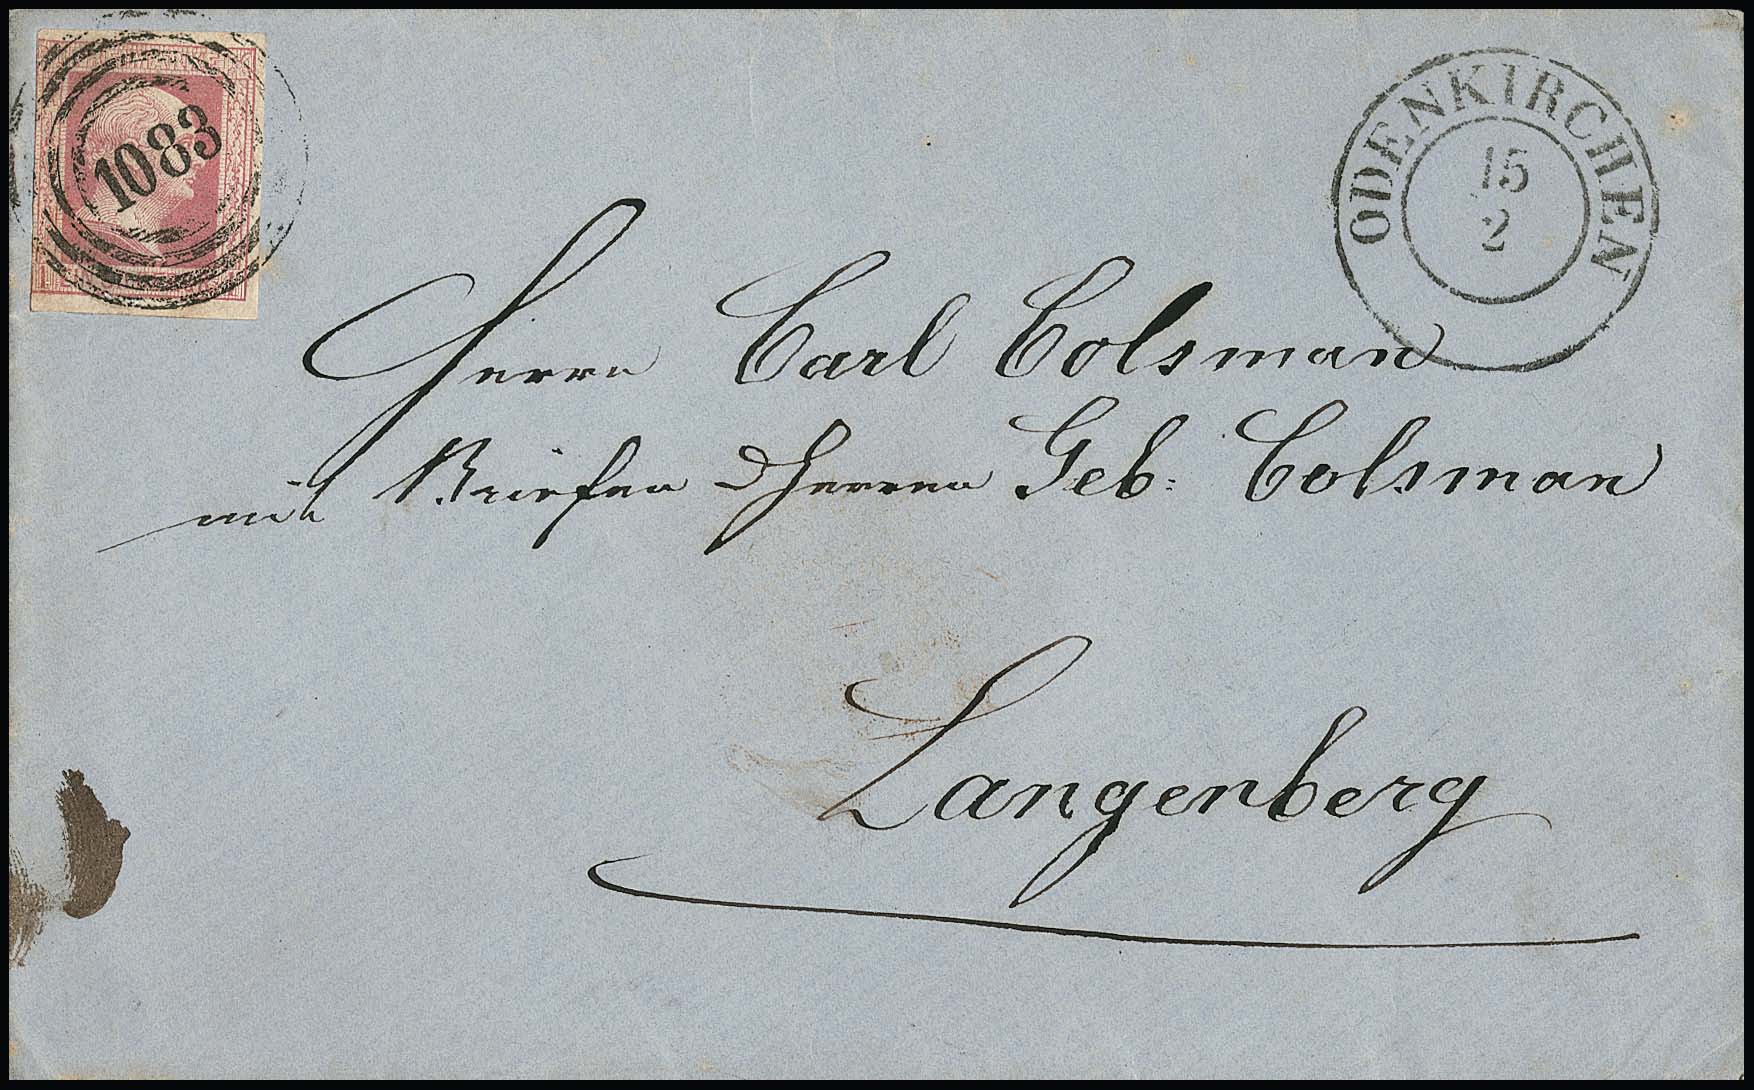 1083
ODENKIRCHEN
15
2
Herrn Carl Colsman
mit Briefen d Herren Geb: Colsman
Langenberg